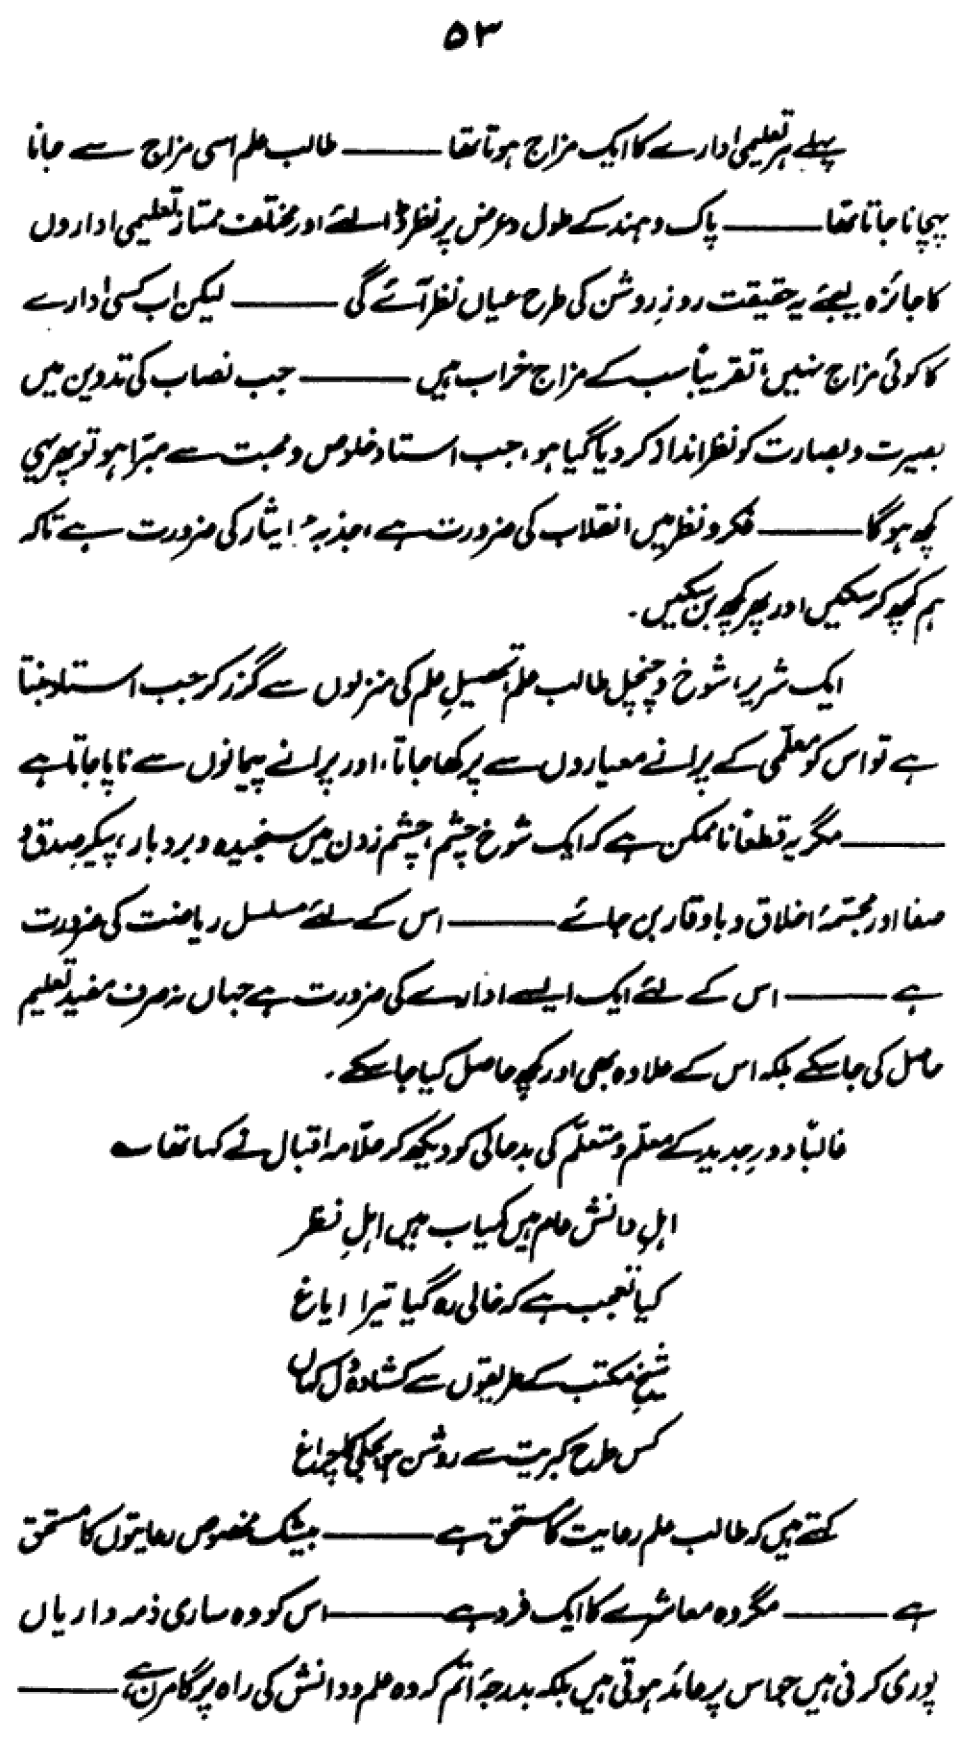 ۵۳
پہلے ہر تعلیمی ادارے کا ایک مزاج ہوتا تھا ——— طالب علم اسی مزاج سے جانا
پہچانا جاتا تھا ——— پاک و ہند کے طول و عرض پر نظر ڈالئے اور مختلف ممتاز تعلیمی اداروں
کا جائزہ لیجئے یہ حقیقت روزِ روشن کی طرح عیاں نظر آئے گی ——— لیکن اب کسی ادارے
کا کوئی مزاج نہیں، تقریباً سب کے مزاج خراب ہیں ——— جب نصاب کی تدوین میں
بصیرت و بصارت کو نظر انداز کر دیا گیا ہو، جب استاد خلوص و محبت سے مبرّا ہو تو پھر یہی
کچھ ہوگا ——— فکر و نظر میں انقلاب کی ضرورت ہے، جذبۂ ایثار کی ضرورت ہے تاکہ
ہم کچھ کر سکیں اور پھر کچھ بن سکیں۔
ایک شریر، شوخ و چنچل طالب علم تحصیلِ علم کی منزلوں سے گزر کر جب استاد بنتا
ہے تو اس کو معلّمی کے پرانے معیاروں سے پرکھا جاتا، اور پرانے پیمانوں سے ناپا جاتا ہے
——— مگر یہ قطعاً ناممکن ہے کہ ایک شوخ چشم، چشم زدن میں سنجیدہ و بردبار، پیکرِ صدق و
صفا اور مجسّمۂ اخلاق و باوقار بن جائے ——— اس کے لئے مسلسل ریاضت کی ضرورت
ہے ——— اس کے لئے ایک ایسے ادارے کی ضرورت ہے جہاں نہ صرف مفید تعلیم
حاصل کی جا سکے بلکہ اس کے علاوہ بھی اور کچھ حاصل کیا جا سکے۔
غالباً دورِ جدید کے معلّم و متعلّم کی بدحالی کو دیکھ کر علّامہ اقبال نے کہا تھا ؎
اہلِ دانش عام ہیں کمیاب ہیں اہلِ نظر
کیا تعجب ہے کہ خالی رہ گیا تیرا ایاغ
شیخِ مکتب کے طریقوں سے کشادِ دل کہاں
کس طرح کبریت سے روشن ہو بجلی کا چراغ
کہتے ہیں کہ طالب علم رعایت کا مستحق ہے ——— بیشک مخصوص رعایتوں کا مستحق
ہے ——— مگر وہ معاشرے کا ایک فرد ہے ——— اس کو وہ ساری ذمہ داریاں
پوری کرنی ہیں جو اس پر عائد ہوتی ہیں بلکہ بدرجۂ اتم کہ وہ علم و دانش کی راہ پر گامزن ہے ———